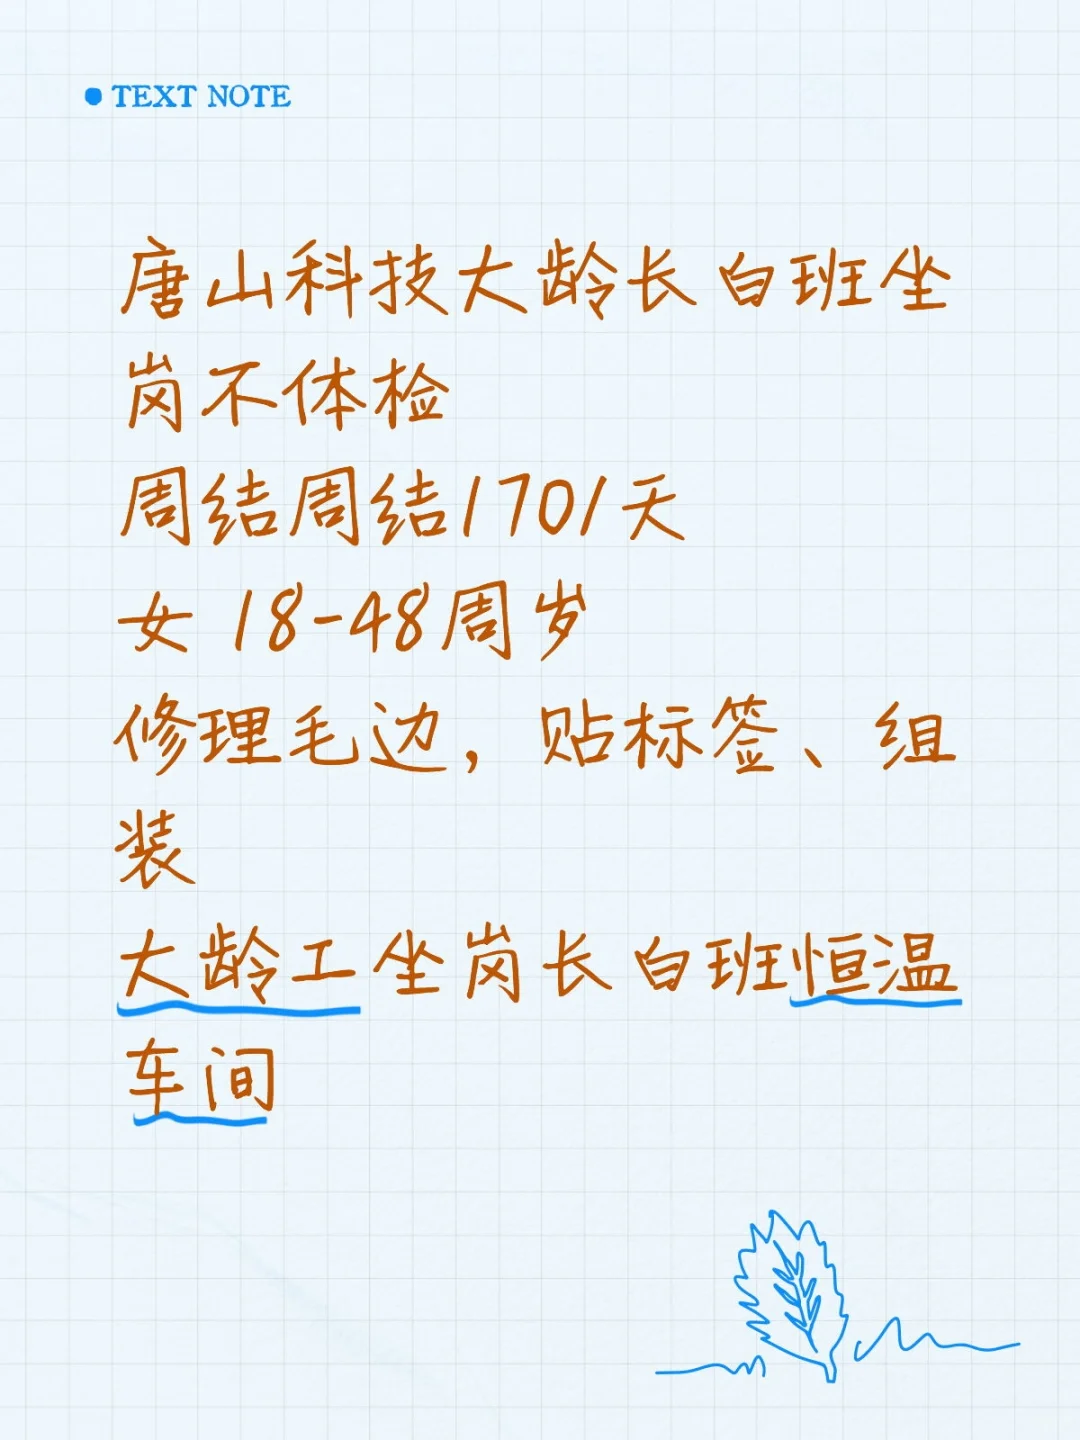 TEXT NOTE
唐山科技大龄长白班坐
岗不体检
周结周结170/天
女 18-48周岁
修理毛边，贴标签、组
装
大龄工坐岗长白班恒温
车间